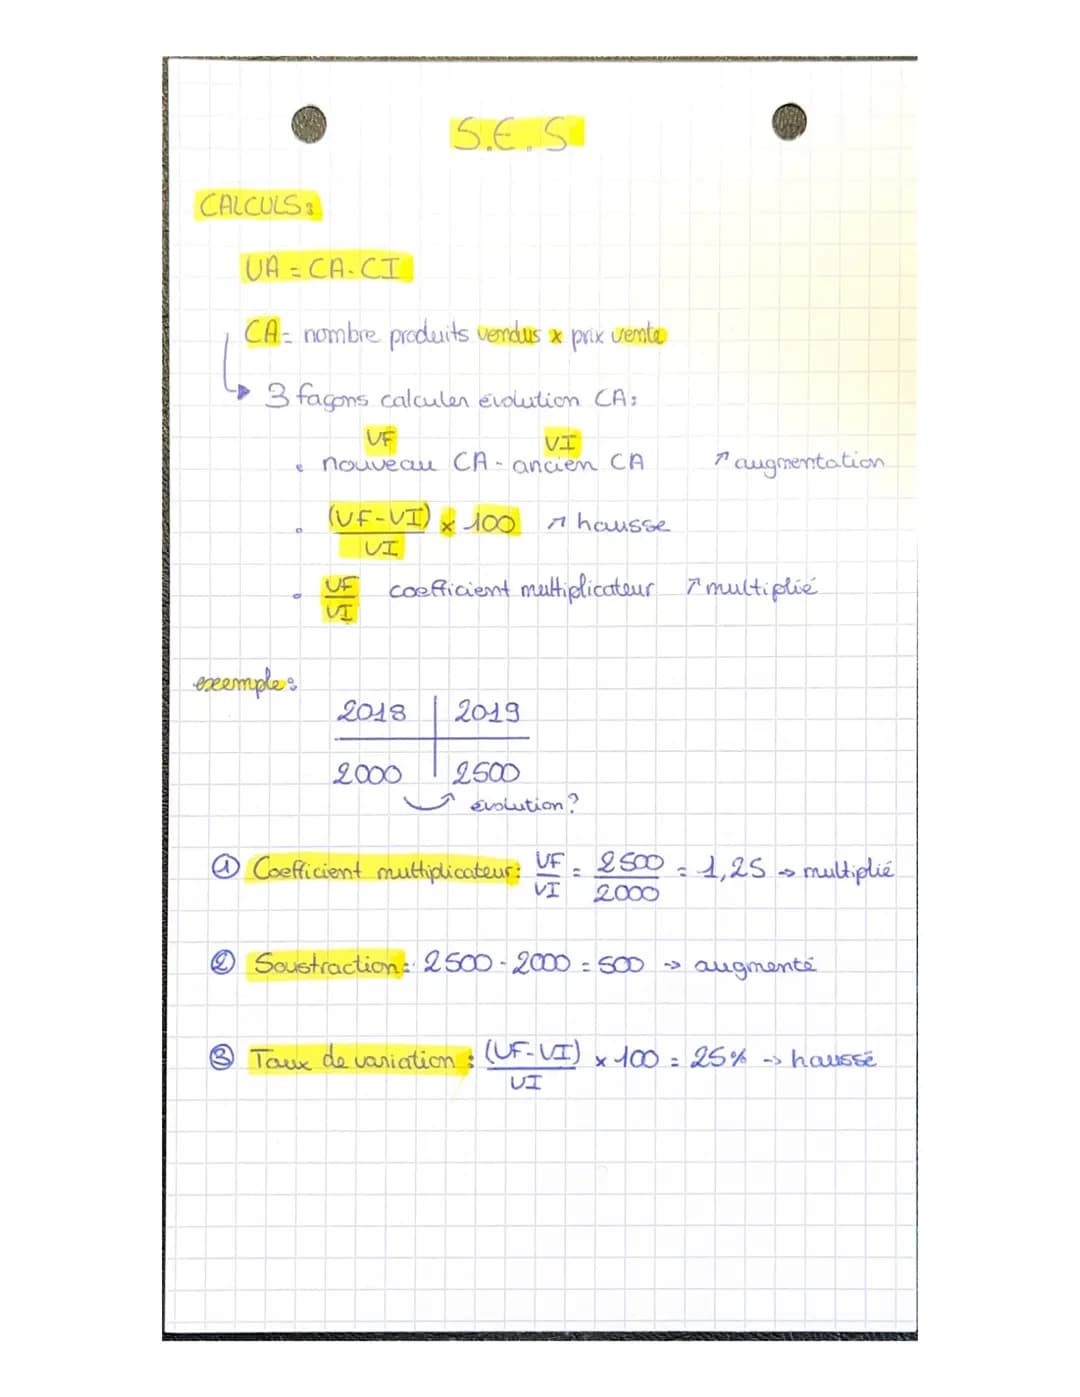 S.E.S
CALCULS:
VA = CA-CI
CA= nombre produits vendus x prix vente
3 façons calculer évolution CA:
VF VI
• nouveau CA - ancien CA ↗ augmentation
• (VF-VI) x 100 ↗ hausse
VI
• VF coefficient multiplicateur ↗ multiplié
VI
exemple:
2018 | 2019
2000 | 2500
évolution?
① Coefficient multiplicateur: VF = 2500 = 1,25 → multiplié
VI 2000
② Soustraction: 2500 - 2000 = 500 → augmenté
③ Taux de variation : (VF-VI) x 100 = 25% → haussé
VI